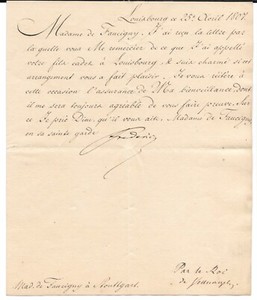 Louisbourg ce 23e. Avril 1807.
Madame de Faucigny. J'ai reçu la lettre par
la quelle vous Me remerciez de ce que J'ai appellé
votre fils cadet à Louisbourg & suis charmé si cet
arrangement vous a fait plaisir. Je vous réitère à
cette occasion l'assurance de Ma bienveillance dont
il me sera toujours agréable de vous faire preuve. Sur
ce Je prie Dieu, qu'il vous aie, Madame de Faucigny,
en sa sainte garde
Frederic
Par le Roi
de
Mad. de Faucigny à Stouttgart.